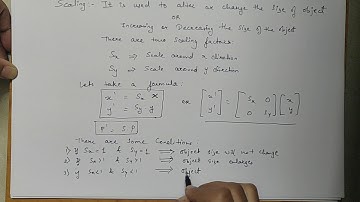 Scaling:- It is used to alter or change the size of object
OR
Increasing or Decreasing the size of the object
There are two scaling factors.
Sx ⇒ Scale around x direction
Sy ⇒ Scale around y direction
Lets take a formula:
x' = Sx x
y' = Sy y
or [x' y'] = [Sx 0 0 Sy] [x y]
P' = S.P
There are Some Conditions
1) If Sx=1 & Sy=1 ⇒ Object size will not change
2) If Sx>1 & Sy>1 ⇒ Object size enlarges
3) If Sx<1 & Sy<1 ⇒ Object